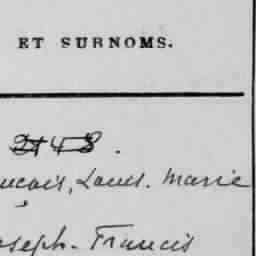 ET SURNOMS.
2148.
ucois, Louis. Marie
oseph. Francis